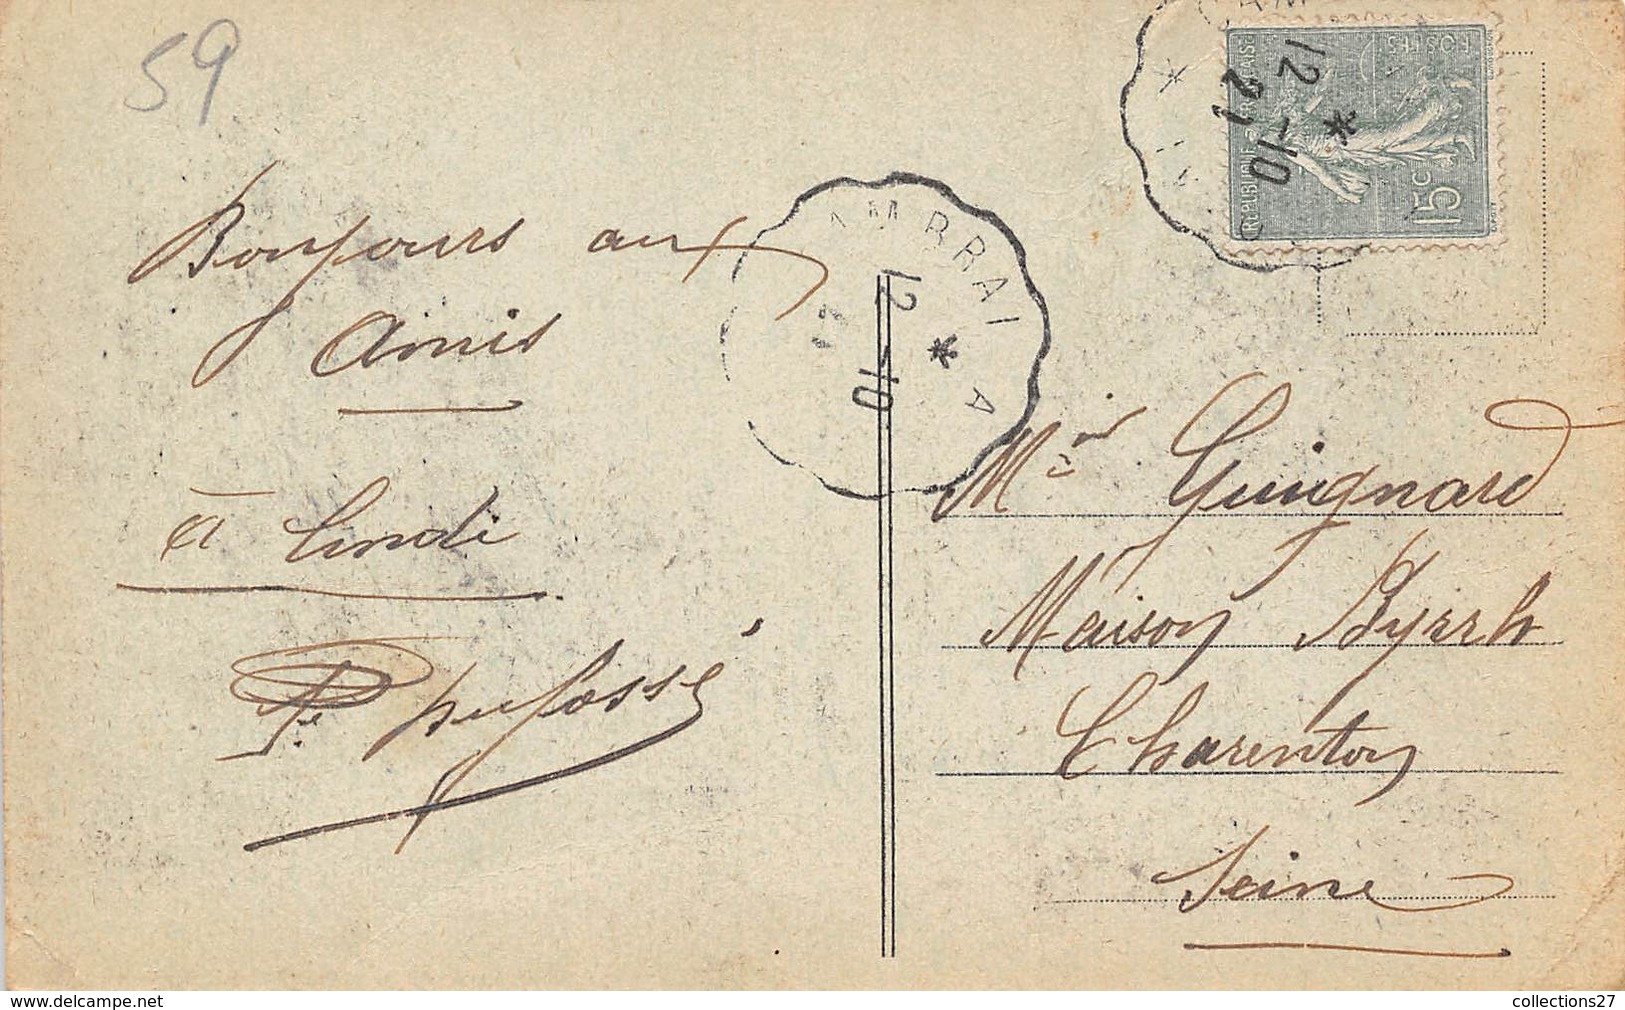 59
Bonjours aux
Amis
à lundi
Dufossé
CAMBRAI A
12 -10
21
12 -10
21
REPUBLIQUE FRANÇAISE
POSTES
15c
Guignard
Maison Byrrh
Charenton
Seine
www.delcampe.net
collections27